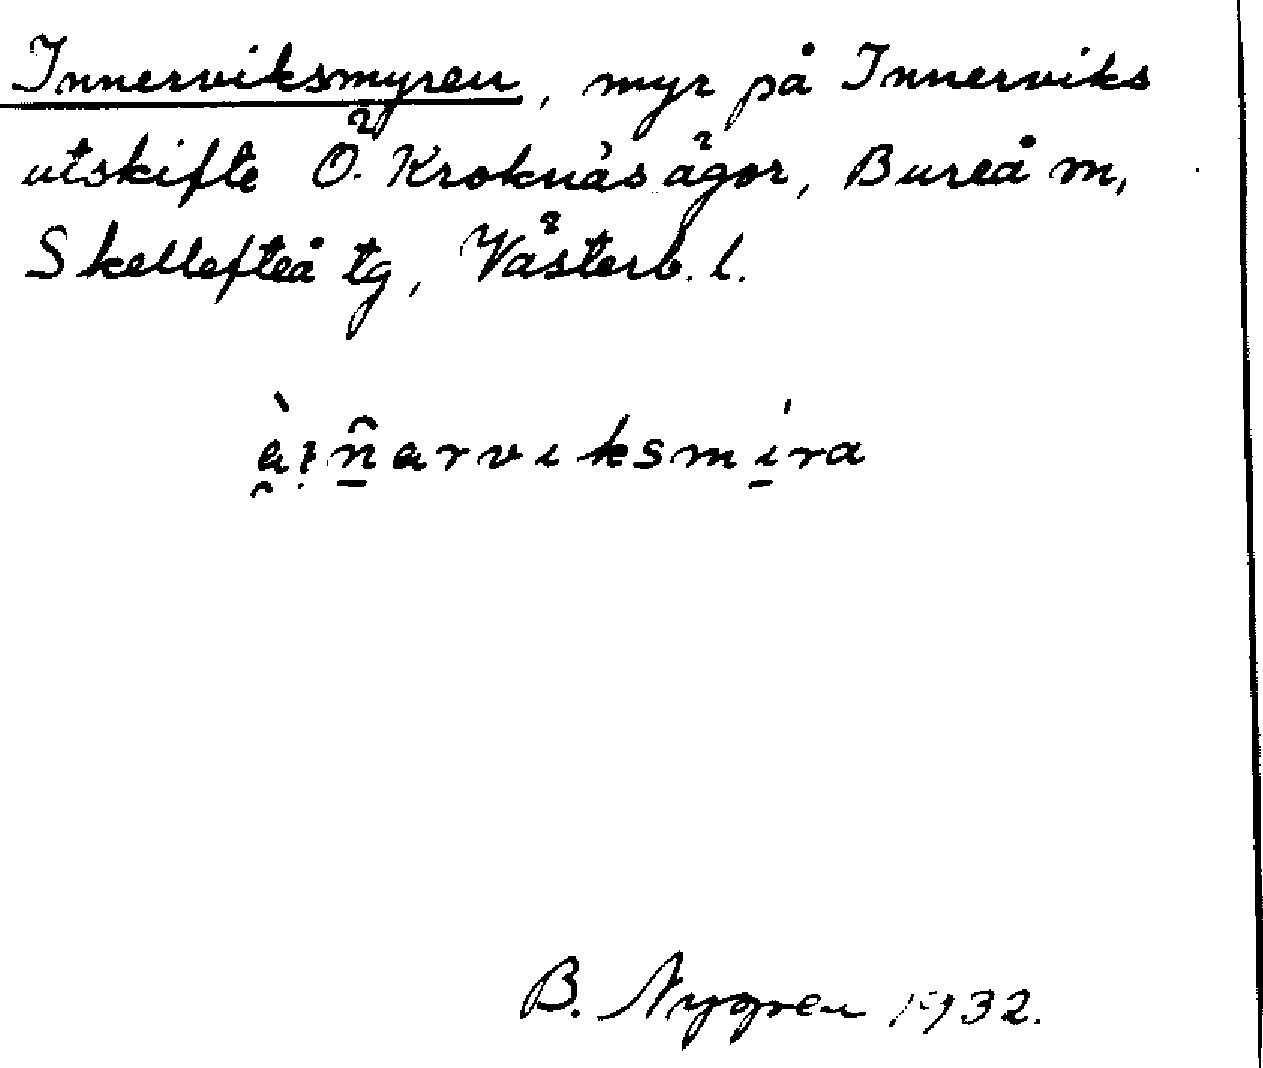 Innerviksmyren, myr på Innerviks
utskifte Ö. Kroknäs ägor, Bureå m,
Skellefteå tg, Västerb. l.
B. Nygren 1932.